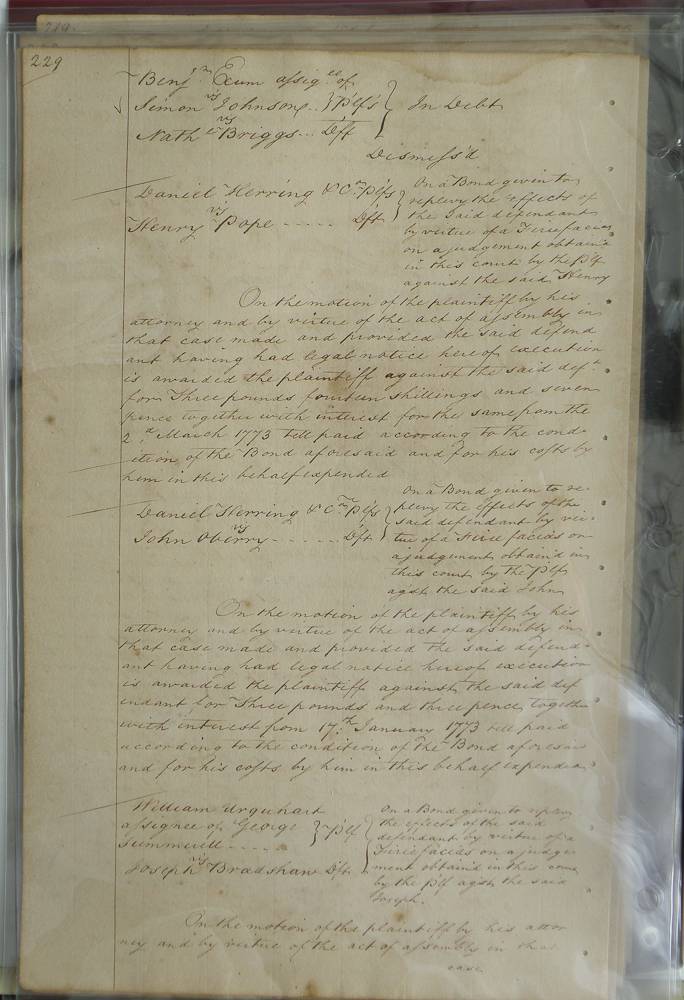 229
Benj.n Exum assig.ee of
Simon Johnson .. } Plf's } In Debt
vs
Nath.l Briggs ... Dft
Dismiss'd
Daniel Herring & C.o Plfs
vs
Henry Pope - - - - - Dft
On a Bond given to
replevy the effects of
the said defendant
by virtue of a Firie facias
on a judgement obtain'd
in this court by the Plf
against the said Henry
On the motion of the plaintiff by his
attorney and by virtue of the act of assembly in
that case made and provided the said defend
ant having had legal notice hereof execution
is awarded the plaintiff against the said def.t
for Three pounds fourteen shillings and seven
pence together with interest for the same from the
2.d March 1773 till paid according to the cond-
ition of the Bond aforesaid and for his costs by
him in this behalf expended
Daniel Herring & C.o Plfs
vs
John Oberry - - - - - - Dft
On a Bond given to re-
plevy the effects of the
said defendant by vir-
tue of a Firie facias on
a judgement obtain'd in
this court by the Plfs
agst the said John
On the motion of the plaintiff by his
attorney and by virtue of the act of assembly in
that case made and provided the said defend-
ant having had legal notice hereof execution
is awarded the plaintiff against the said def
endant for Three pounds and three pence together
with interest from 17.th January 1773 till paid
according to the condition of the Bond aforesaid
and for his costs by him in this behalf expended
William Urquhart
assignee of George } Plf
Summerell - - - - -
vs
Joseph Bradshaw Dft
On a Bond given to replevy
the effects of the said
defendant by virtue of a
Firie facias on a judge-
ment obtain'd in this court
by the Plf agst the said
Joseph.
On the motion of the plaintiff by his attor
ney and by virtue of the act of assembly in that
case